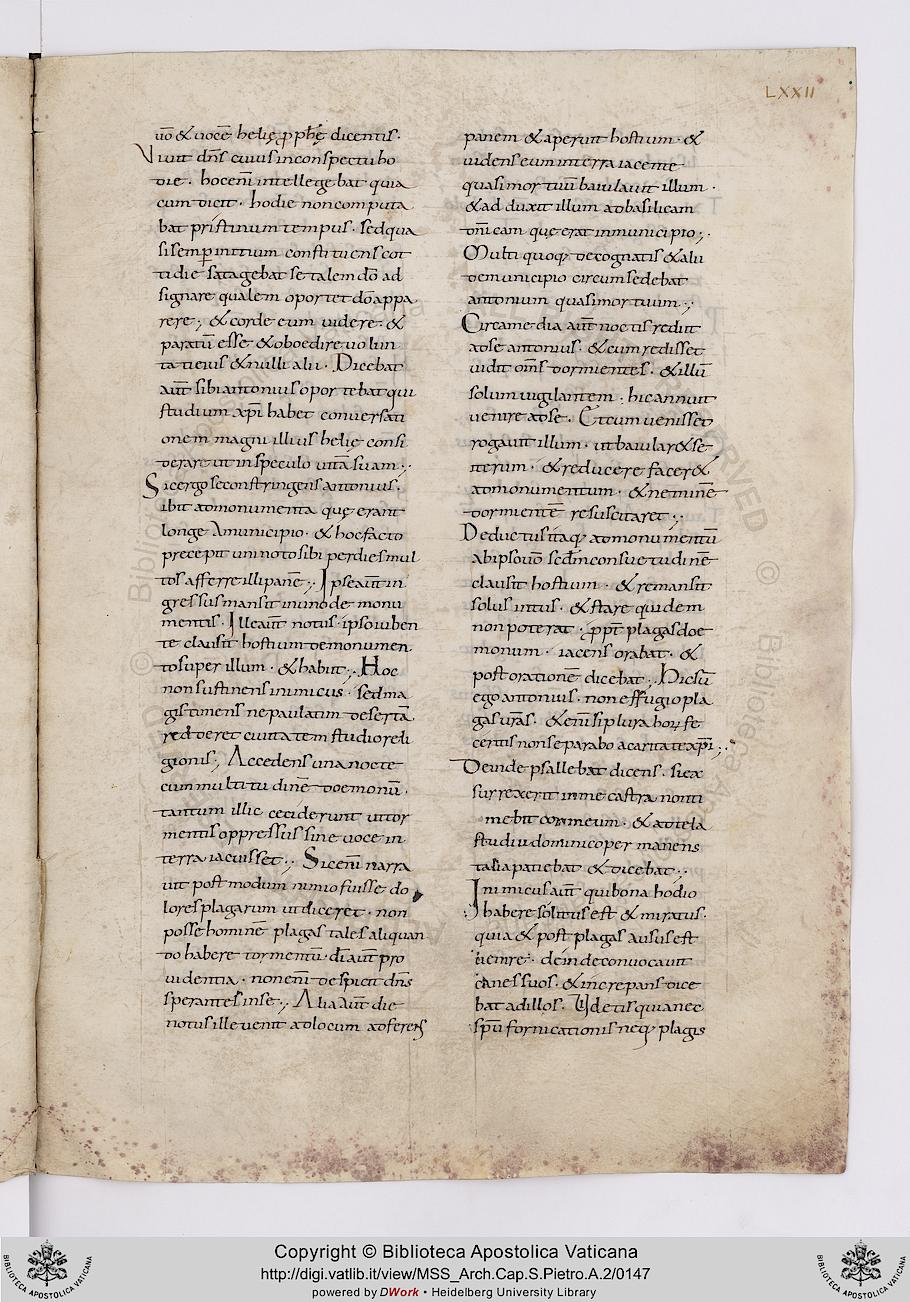 LXXII
uō & uocē helię ꝓphę dicentis·
Viuit dn̄s cuius inconspectu ho
die· hocenī intellegebat quia
cum dicit· hodie noncomputa
bat pristinum tempus· sedqua
sisemp initium constituens cot
tidie satagebat se talem dō ad
signare qualem oportet dō appa
rere; & corde eum uidere· &
paratū esse & oboedire uolun
tati eius & nulli alii· Dicebat
aūt sibi antonius oportebat qui
studium xp̄i habet conuersati
onem magni illius helię consi
derare ut in speculo uitā suam;
Sic ergo se constringens antonius·
ibit ad monumenta quę erant
longe a municipio· & hoc facto
precepit uni noto sibi per dies mul
tos afferre illi panē; Ipse aūt in
gressus mansit in uno de monu
mentis· Ille aūt notus· ipso iuben
te clausit hostium de monumen
to super illum· & habiit; Hoc
non sustinens inimicus· sed ma
gis timens ne paulatim desertā
redderet ciuitatem studio reli
gionis; Accedens una nocte
cum multitudinē doemonū·
tantum illic ceciderunt ut tor
mentis oppressus sine uoce in
terra iacuisset; Sic enī narra
uit post modum nimio fuisse do
lores plagarum ut diceret· non
posse hominē plagas tales aliquan
do habere tormentū· dī aūt pro
uidentia· non enī despicit dn̄s
sperantes in se; Alia aūt die
notus ille uenit ad locum ad ferens
panem & aperuit hostium· &
uidens eum in terra iacente
quasi mortuū baiulauit illum·
& ad duxit illum ad basilicam
dn̄icam quę erat in municipio;
Multi quoq; de cognatis & alii
de municipio circum sedebat
antonium quasi mortuum;
Circa media aūt noctis rediit
ad se antonius· & cum redisset
uidit om̄s dormientes· & illū
solum uigilantem· hic annuit
uenire ad se· Et cum uenisset
rogauit illum· ut baiular& se
iterum· & reducere facer&
ad monumentum· & neminē
dormientē resuscitaret;
Deductus itaq; ad monumentū
ab ipso uō scdm consuetudinē
clausit hostium· & remansit
solus intus· & stare quidem
non poterat· ꝓpt plagas doe
monum· iacens orabat· &
post orationē dicebat; Hic sū
ego antonius· non effugio pla
gas ur̄as· & enī si plura horꝝ fe
ceritis non separabo a caritate xp̄i;
Deinde psallebat dicens· si ex
surrexerit in me castra non ti
mebit cor meum· & ad tela
studiū dominico per manens
talia patiebat & dicebat;
Inimicus aūt qui bona hodio
habere solitus est & miratus·
quia & post plagas ausus est
uenire· deinde conuocauit
canes suos· & increpans dice
bat ad illos· Uidetis quia nec
spū fornicationis neq; plagis
Copyright © Biblioteca Apostolica Vaticana
http://digi.vatlib.it/view/MSS_Arch.Cap.S.Pietro.A.2/0147
powered by DWork • Heidelberg University Library
BIBLIOTECA APOSTOLICA VATICANA
BIBLIOTECA APOSTOLICA VATICANA